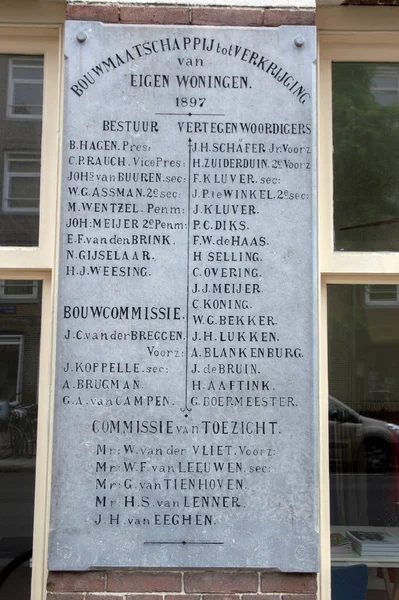 BOUWMAATSCHAPPIJ tot VERKRIJGING
van
EIGEN WONINGEN.
1897
BESTUUR
B. HAGEN. Pres:
C.P. RAUCH. Vice Pres:
JOHs van BUUREN. sec:
W.G. ASSMAN. 2e sec:
M. WENTZEL. Penm:
JOH: MEIJER 2e Penm:
E.F. van den BRINK.
N. GIJSELAAR.
H.J. WEESING.
BOUWCOMMISSIE.
J.C. van der BREGGEN.
Voorz:
J. KOPPELLE. sec:
A. BRUGMAN.
G.A. van CAMPEN.
VERTEGENWOORDIGERS
J.H. SCHÄFER Jr. Voorz
H. ZUIDERDUIN. 2e Voorz
F. KLUVER. sec:
J.P. te WINKEL. 2e sec:
J. KLUVER.
P.C. DIKS.
F.W. de HAAS.
H SELLING.
C. OVERING.
J.J. MEIJER.
C. KONING.
W.G. BEKKER.
J.H. LUKKEN.
A. BLANKENBURG.
J. de BRUIN.
H. AAFTINK.
G. BOERMEESTER.
COMMISSIE van TOEZICHT.
Mr: W. van der VLIET. Voorz:
Mr: W.F. van LEEUWEN. sec:
Mr: G. van TIENHOVEN.
Mr H.S. van LENNER.
J.H. van EEGHEN.